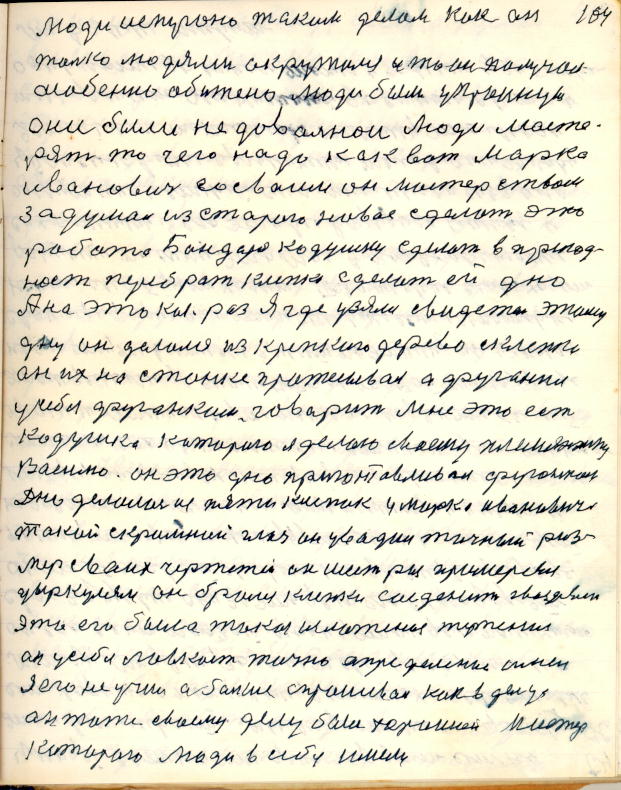 люди испугано таким делом как он 184
только людями окружился и то он получал
особенно обижено люди были
они были не довольной люди масте-
рят то чего надо как вот Марка
иванович со сваем он мастерством
задумал из старого новое сделат это
работа Бандаря кадушку сделат в пригод-
ност перебрат клепки сделат ей дно
А на это как раз я где взялся свидетел этому
дну он делался из крепкого дерева с клепки
он их на станке протесывал а друганки
у себя друганкам говарит мне это ест
кадушка каторого я делаю своему племяннику
Васило. он это дно приготавливал фуганкай
Дно делалася из пяти клепак у марка ивановича
такой скромной глаз он увадил точный раз-
мер сваих чертежей он шест раз примерял
цыркулям он брался клепки соеденит гваздями
это его была такая терпения
он у себя ловкаст точно определение
Я его не учил а болше спрашивал как в делу
он тоже своему делу была харошай мастер
Катораго люди в себу имели